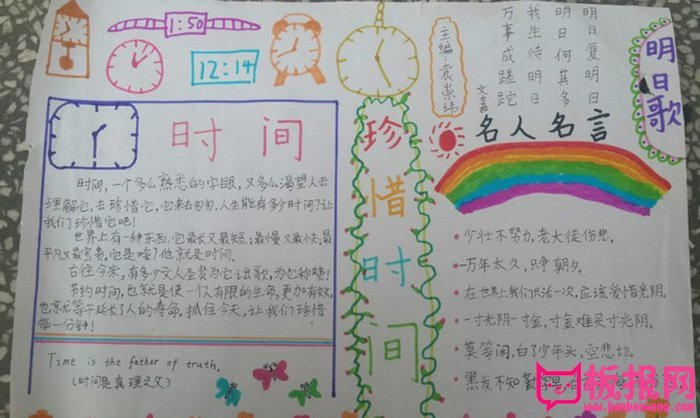 1:50
12:14
时间
时间,一个多么熟悉的字眼,又多么渴望人去
理解它,去珍惜它,它来去匆匆,人生能有多少时间?让
我们珍惜它吧!
世界上有一种东西,它最长又最短;最慢又最快;最
平凡又最宝贵。它是啥?他就是时间.
古往今来,有多少文人圣贤为它讴歌,为它称赞!
节约时间,也就是使一个人有限的生命,更加有效,
也就等于延长了人的寿命.抓住今天,让我们珍惜
每一分钟!
Time is the father of truth.
(时间是真理之父)
珍惜时间
明日歌
明日复明日
明日何其多
我生待明日
万事成蹉跎
文嘉
主编:袁崇
名人名言
少壮不努力,老大徒伤悲.
一万年太久,只争朝夕。
在世界上我们只活一次,应该爱惜光阴。
一寸光阴一寸金,寸金难买寸光阴。
莫等闲,白了少年头,空悲切。
黑发不知勤
板报网
www.banbaowang.com